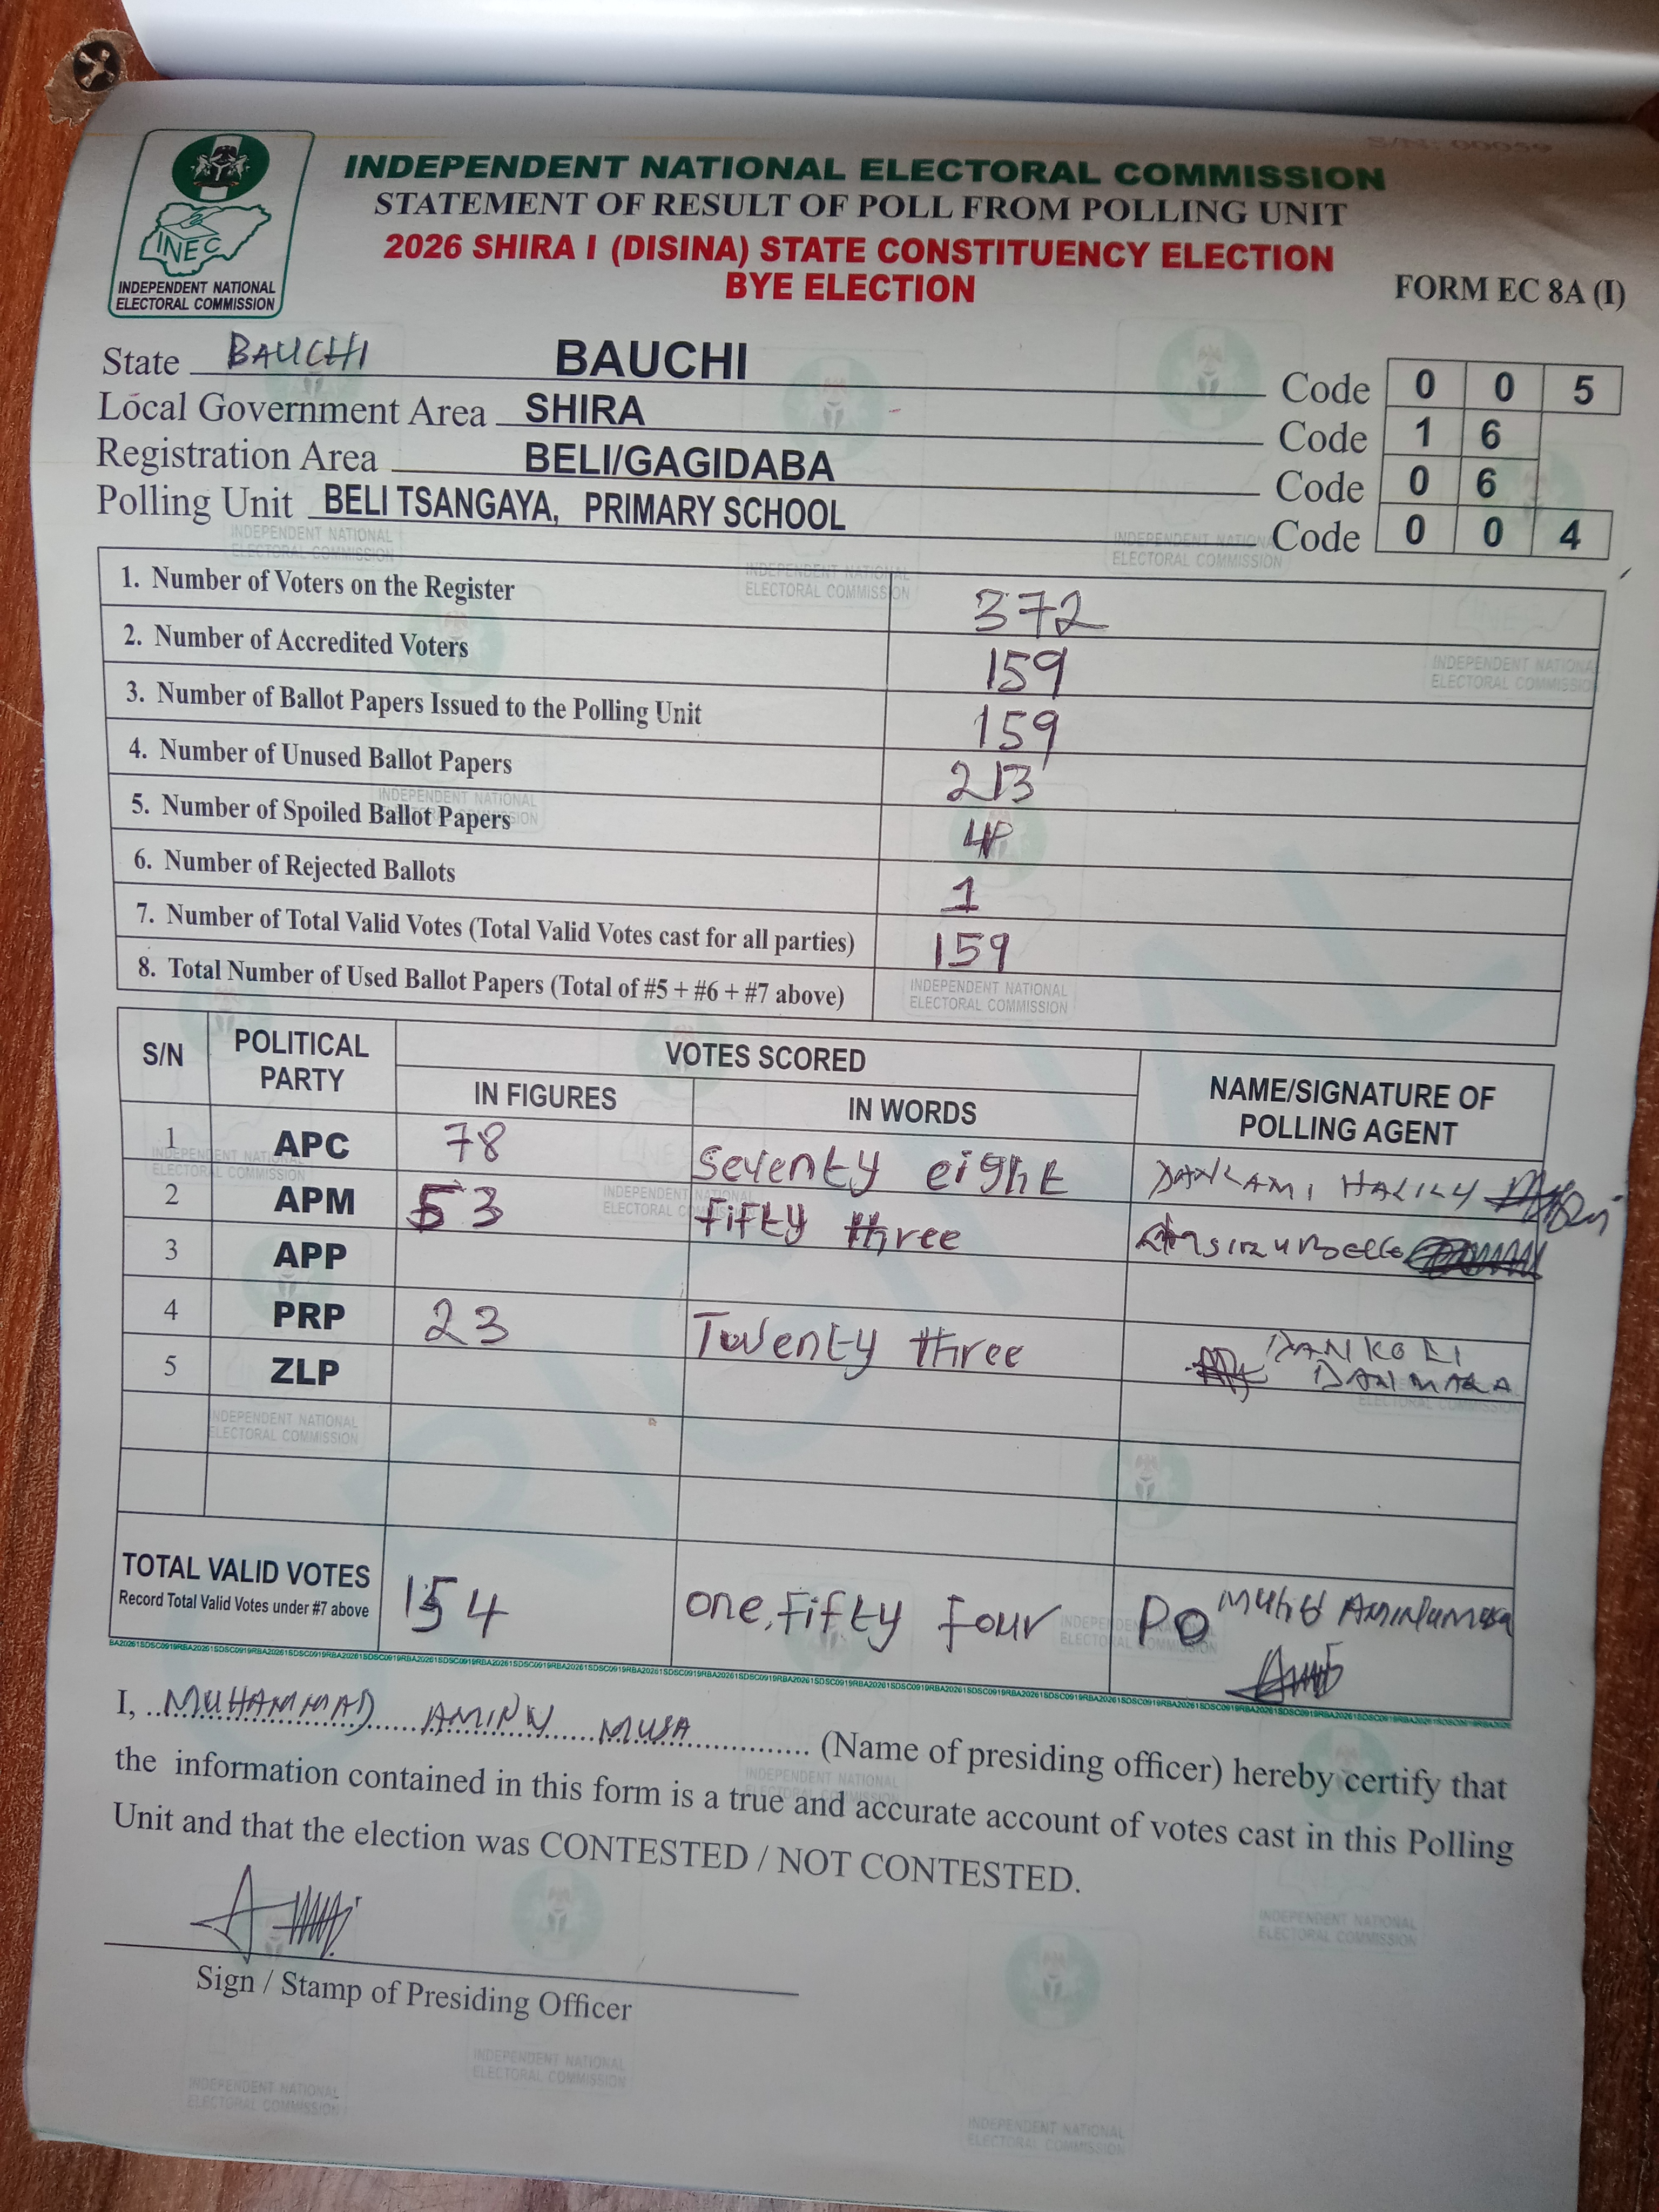 S/N: 00059
INEC
INDEPENDENT NATIONAL
ELECTORAL COMMISSION
INDEPENDENT NATIONAL ELECTORAL COMMISSION
STATEMENT OF RESULT OF POLL FROM POLLING UNIT
2026 SHIRA I (DISINA) STATE CONSTITUENCY ELECTION
BYE ELECTION
FORM EC 8A (I)
State BAUCHI BAUCHI Code 0 0 5
Local Government Area SHIRA Code 1 6
Registration Area BELI/GAGIDABA Code 0 6
Polling Unit BELI TSANGAYA, PRIMARY SCHOOL Code 0 0 4
1. Number of Voters on the Register 372
2. Number of Accredited Voters 159
3. Number of Ballot Papers Issued to the Polling Unit 159
4. Number of Unused Ballot Papers 213
5. Number of Spoiled Ballot Papers 4
6. Number of Rejected Ballots 1
7. Number of Total Valid Votes (Total Valid Votes cast for all parties) 159
8. Total Number of Used Ballot Papers (Total of #5 + #6 + #7 above)
S/N POLITICAL PARTY VOTES SCORED NAME/SIGNATURE OF POLLING AGENT
IN FIGURES IN WORDS
1 APC 78 Seventy eight DANLAMI
2 APM 53 Fifty three
3 APP
4 PRP 23 Twenty three DANKOLI
5 ZLP DANMAKA
TOTAL VALID VOTES 154 one, Fifty Four PO
Record Total Valid Votes under #7 above
I, MUHAMMAD AMINU MUSA (Name of presiding officer) hereby certify that
the information contained in this form is a true and accurate account of votes cast in this Polling
Unit and that the election was CONTESTED / NOT CONTESTED.
Sign / Stamp of Presiding Officer